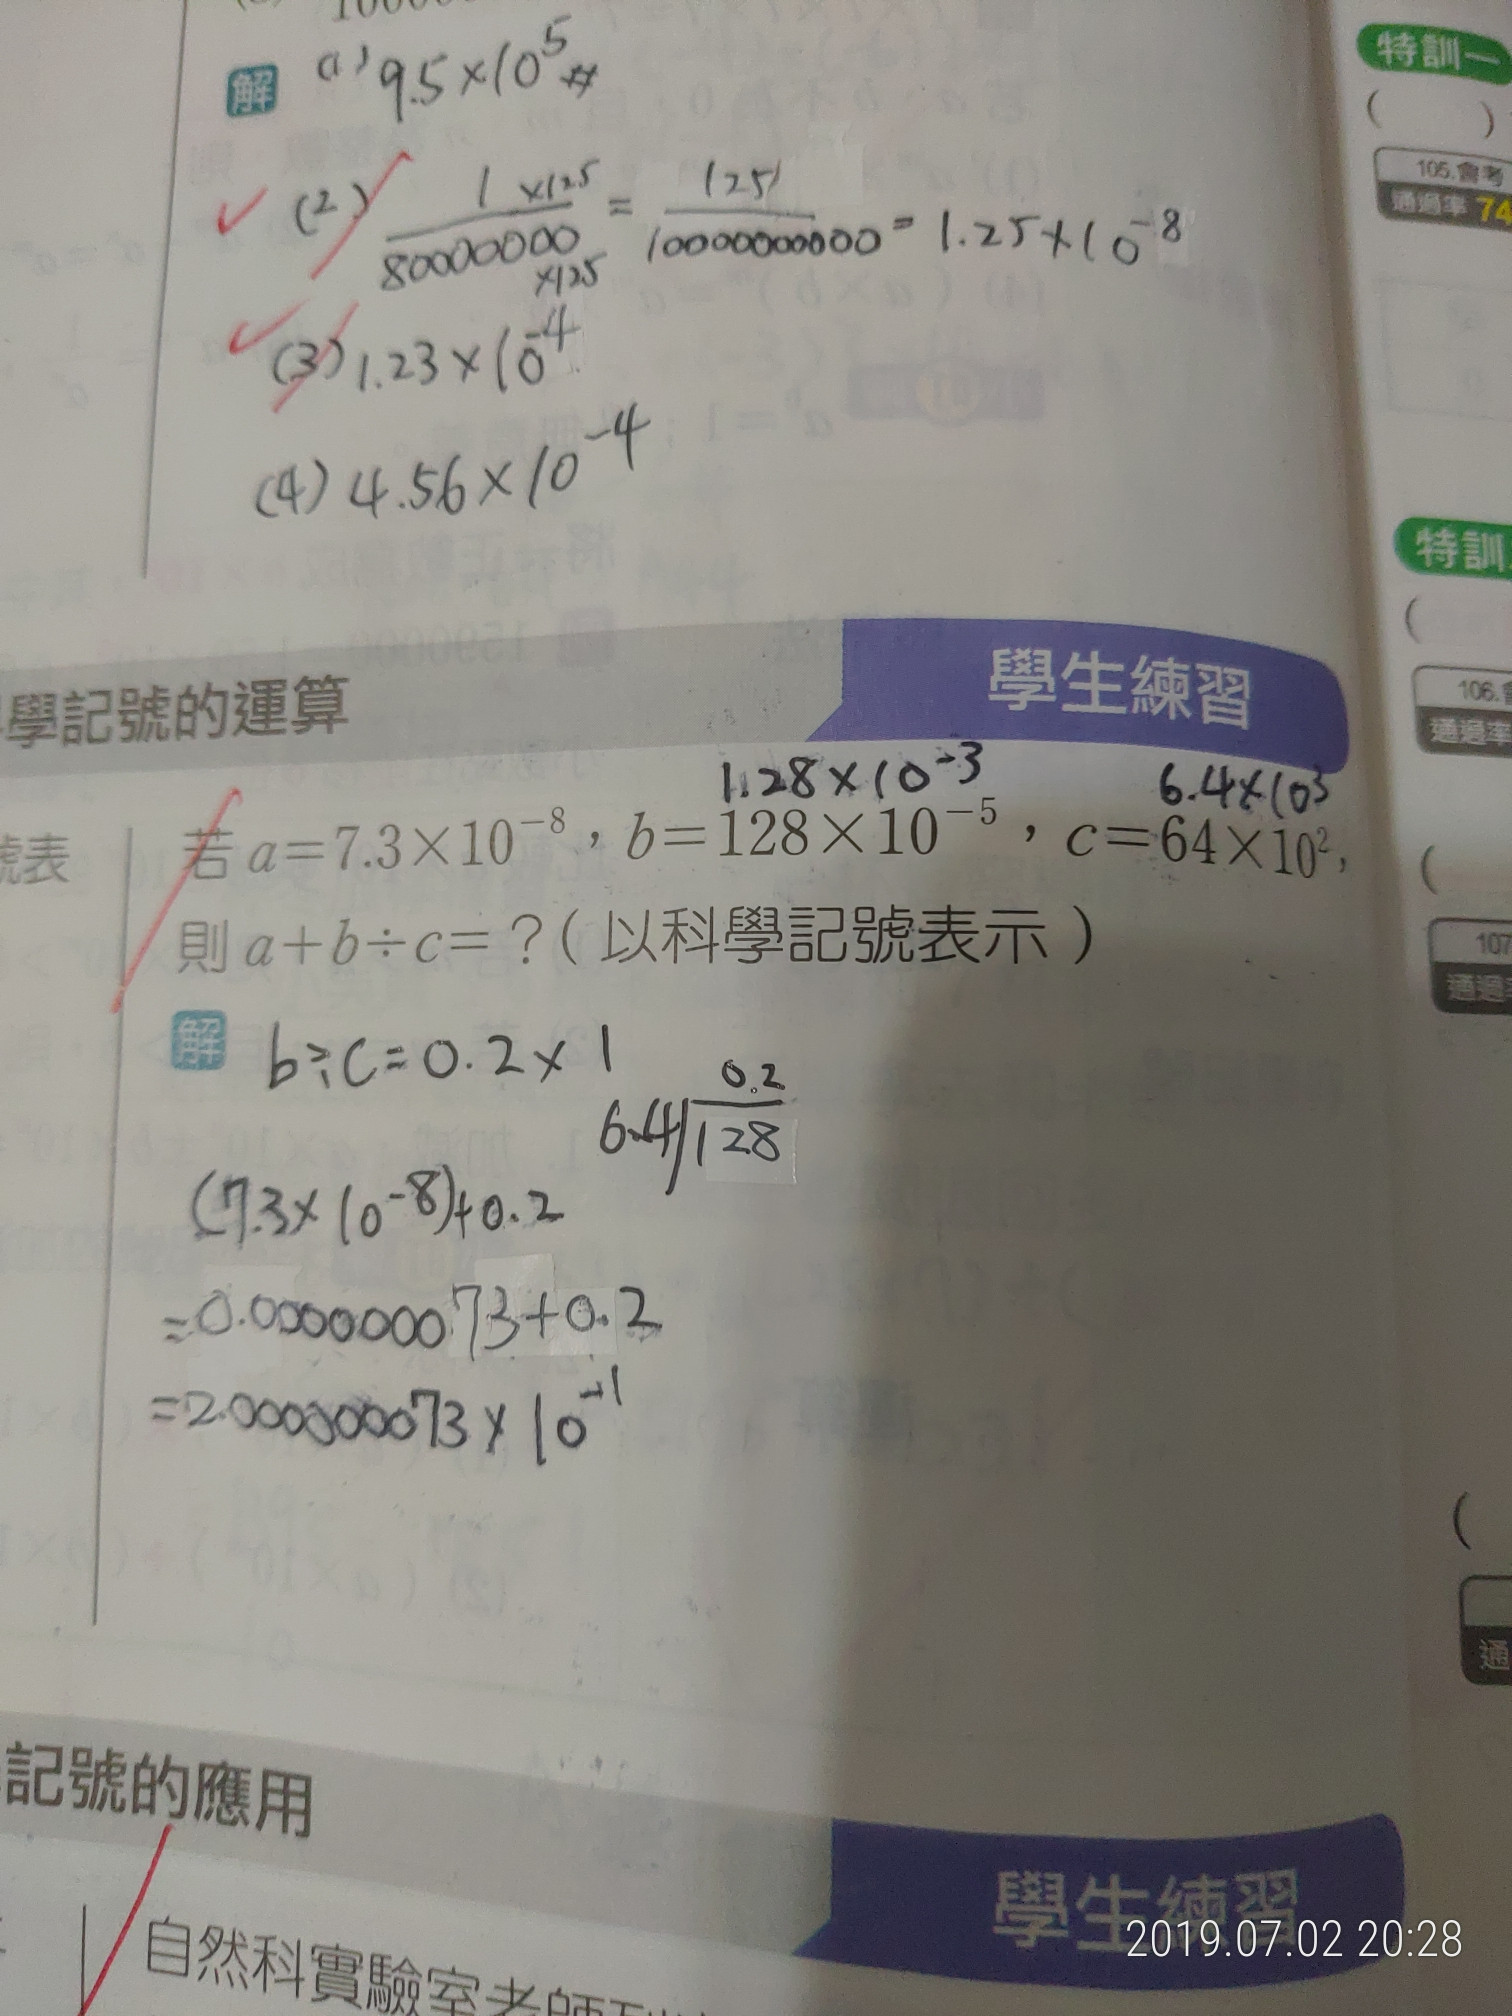 解 (1) 9.5×10⁵ #
特訓一
( )
105.會考
通過率 74
(2) 1 ×125 / 80000000 ×125 = 125 / 10000000000 = 1.25×10⁻⁸
(3) 1.23×10⁻⁴
(4) 4.56×10⁻⁴
特訓
(
106.會
通過率
學記號的運算 學生練習
1.28×10⁻³ 6.4×10³
號表
若 a=7.3×10⁻⁸，b=128×10⁻⁵，c=64×10²，
(
則 a+b÷c=？（以科學記號表示）
107
通過
解 b÷c=0.2×1
0.2
6.4 128
(7.3×10⁻⁸)+0.2
=0.000000073+0.2
=2.00000073×10⁻¹
(
通
記號的應用
學生練習
自然科實驗室老師
2019.07.02 20:28